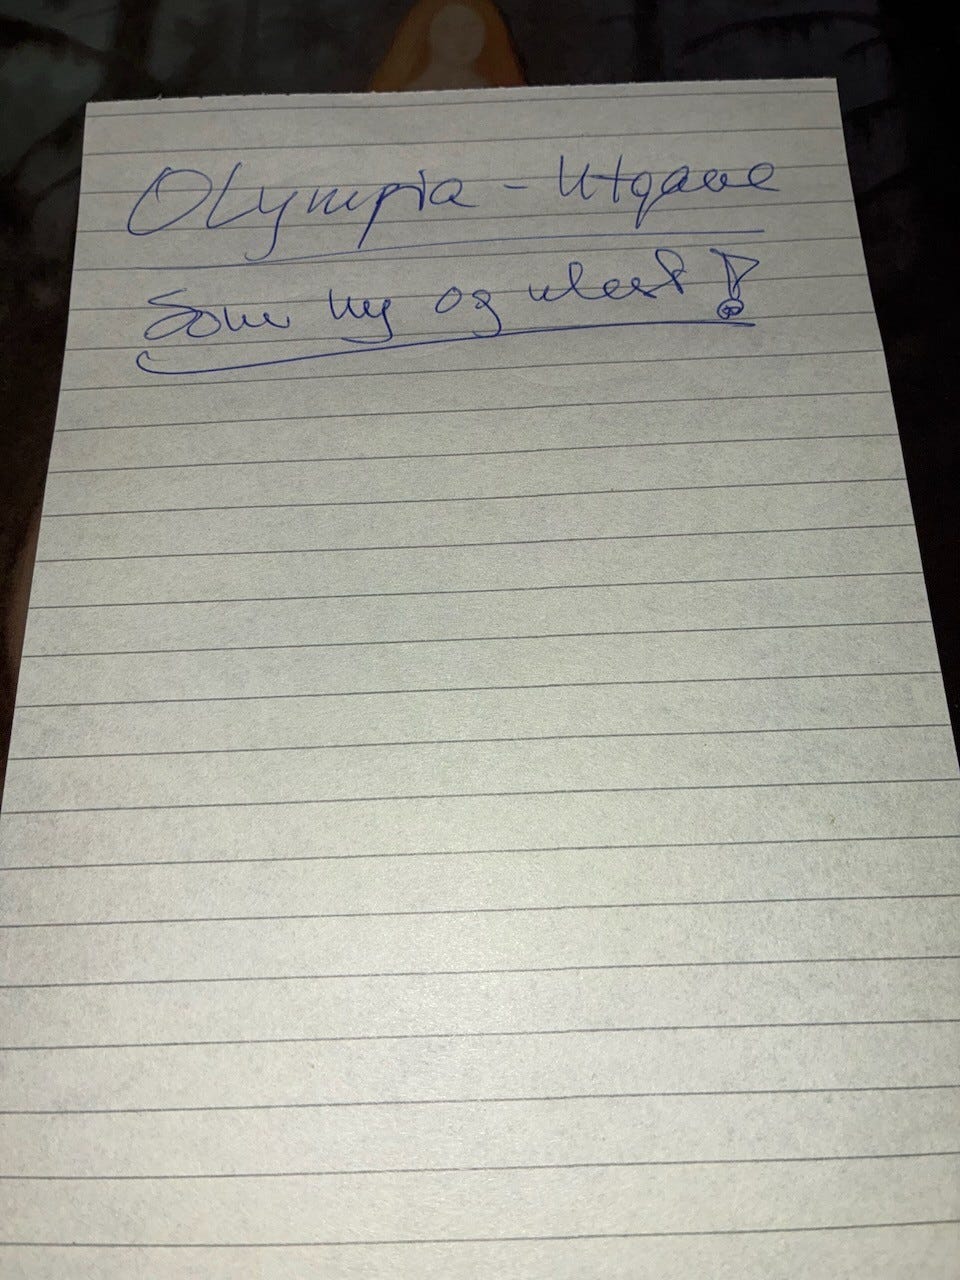 Olympia - Utgave
Som ny og ulest!